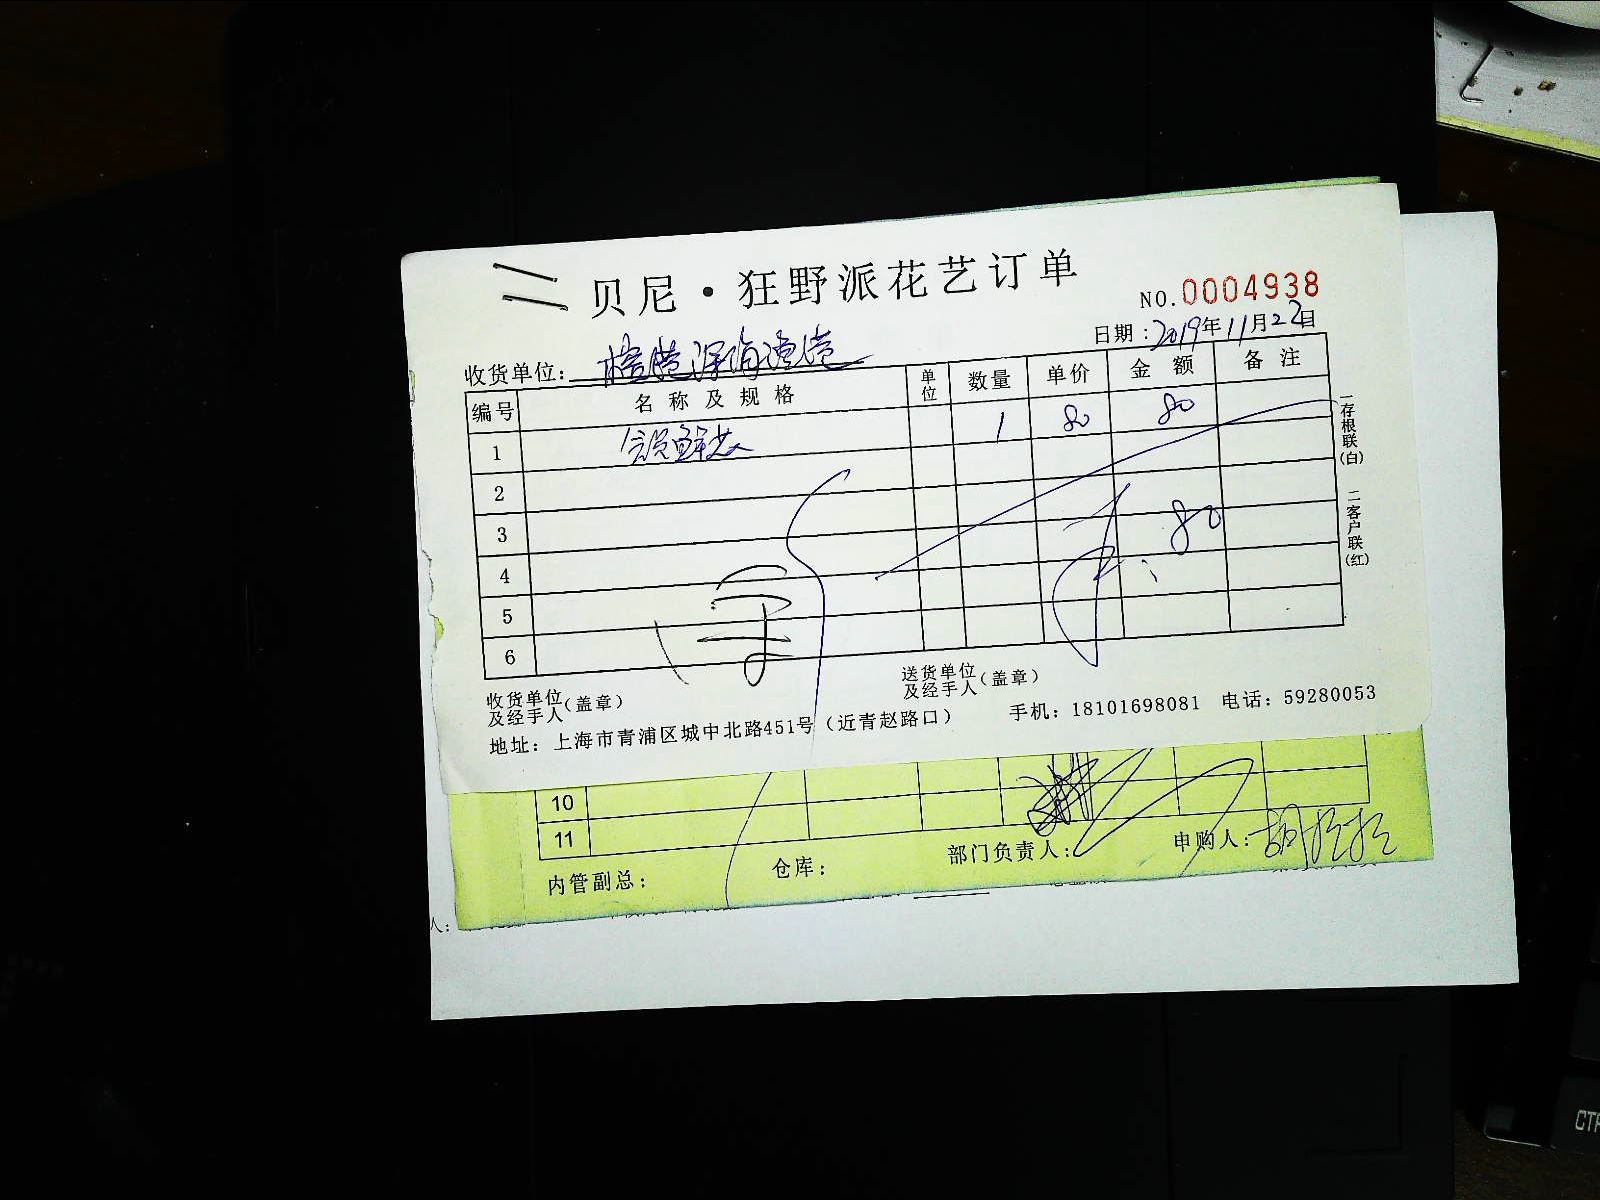 贝尼·狂野派花艺订单
NO.0004938
日期：2019年11月22日
收货单位：
编号 名称及规格 单位 数量 单价 金额 备注
1 会员鲜花 1 80 80
2
3
80
4
5
6
一存根联(白) 二客户联(红)
收货单位及经手人(盖章) 送货单位及经手人(盖章)
地址：上海市青浦区城中北路451号（近青赵路口） 手机：18101698081 电话：59280053
10
11
内管副总： 仓库： 部门负责人： 申购人：
人：
CTR